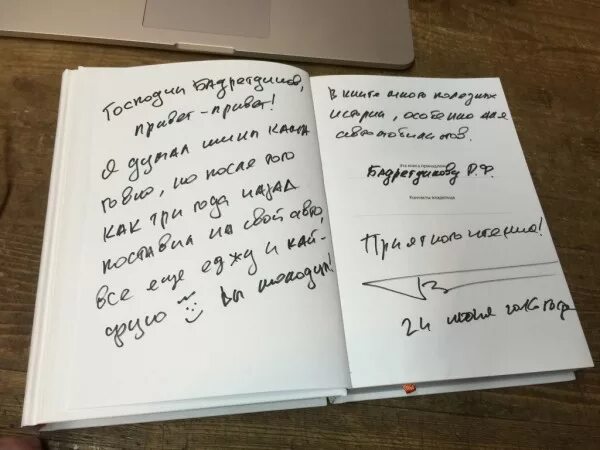 Господин Бадретдинов,
привет-привет!
Я думал шипы кап
товно, но после того
как три года назад
поставил на свой авто,
все еще езжу и кай-
фую Вы молодцы!
В книге много полезных
историй, особенно для
автомобилистов.
Эта книга принадлежит
Бадретдинову Р.Ф.
Контакты владельца
Приятного чтения!
24 июня 2016 года